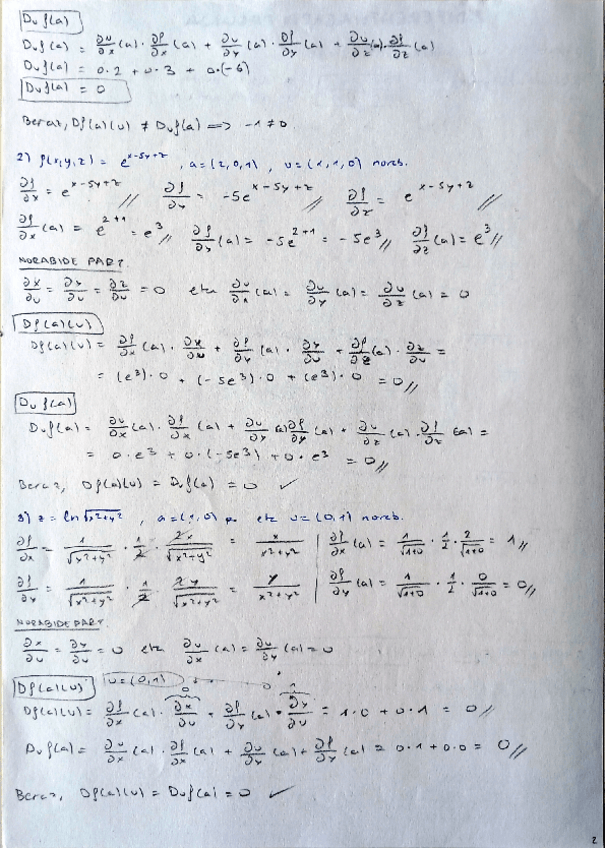 Duf(a)
Duf(a) = ∂u/∂x (a) · ∂f/∂x (a) + ∂u/∂y (a) · ∂f/∂y (a) + ∂u/∂z (a) · ∂f/∂z (a)
Duf(a) = 0·2 + 0·3 + 0·(-6)
Duf(a) = 0
Beraz, Df(a)(u) ≠ Duf(a) ⟹ -1 ≠ 0
2) f(x,y,z) = e^(x-5y+z), a=(2,0,1), u=(1,1,0) norab.
∂f/∂x = e^(x-5y+z) // ∂f/∂y = -5e^(x-5y+z) // ∂f/∂z = e^(x-5y+z) //
∂f/∂x (a) = e^(2+1) = e^3 // ∂f/∂y (a) = -5e^(2+1) = -5e^3 // ∂f/∂z (a) = e^3 //
NORABIDE PART.
∂x/∂u = ∂y/∂u = ∂z/∂u = 0 eta ∂u/∂x (a) = ∂u/∂y (a) = ∂u/∂z (a) = 0
Df(a)(u)
Df(a)(u) = ∂f/∂x (a) · ∂x/∂u + ∂f/∂y (a) · ∂y/∂u + ∂f/∂z (a) · ∂z/∂u =
= (e^3)·0 + (-5e^3)·0 + (e^3)·0 = 0 //
Duf(a)
Duf(a) = ∂u/∂x (a) · ∂f/∂x (a) + ∂u/∂y (a) ∂f/∂y (a) + ∂u/∂z (a) · ∂f/∂z (a) =
= 0·e^3 + 0·(-5e^3) + 0·e^3 = 0 //
Beraz, Df(a)(u) = Duf(a) = 0 ✓
3) z = ln √(x²+y²), a=(1,0) p. eta u=(0,1) norab.
∂f/∂x = 1/√(x²+y²) · 1/2 · 2x/√(x²+y²) = x/(x²+y²) | ∂f/∂x (a) = 1/√(1+0) · 1/2 · 2/√(1+0) = 1 //
∂f/∂y = 1/√(x²+y²) · 1/2 · 2y/√(x²+y²) = y/(x²+y²) | ∂f/∂y (a) = 1/√(1+0) · 1/2 · 0/√(1+0) = 0 //
NORABIDE PART.
∂x/∂u = ∂y/∂u = 0 eta ∂u/∂x (a) = ∂u/∂y (a) = 0
Df(a)(u) u=(0,1) 0 1
Df(a)(u) = ∂f/∂x (a) · ∂x/∂u + ∂f/∂y (a) · ∂y/∂u = 1·0 + 0·1 = 0 //
Duf(a) = ∂u/∂x (a) · ∂f/∂x (a) + ∂u/∂y (a) + ∂f/∂y (a) = 0·1 + 0·0 = 0 //
Beraz, Df(a)(u) = Duf(a) = 0 ✓
2